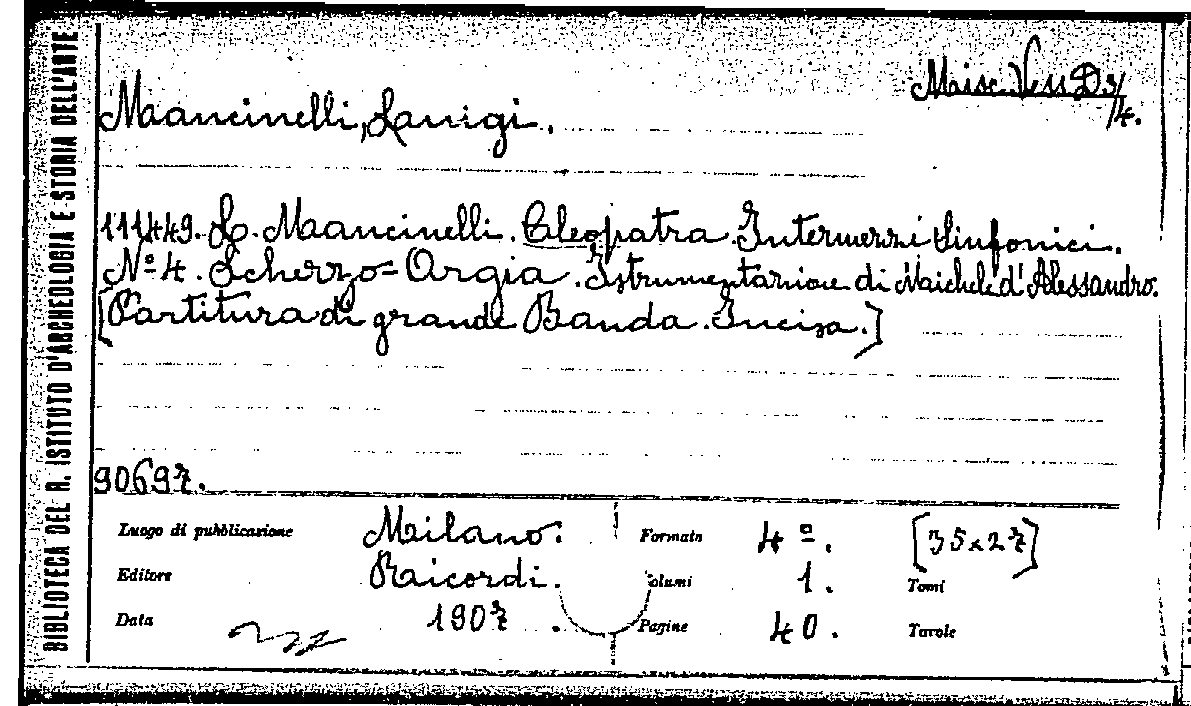 BIBLIOTECA DEL R. ISTITUTO D'ARCHEOLOGIA E STORIA DELL'ARTE
Misc. Vess D3/4.
Mancinelli, Luigi.
111449. L. Mancinelli. Cleopatra. Intermezzi Sinfonici.
Nº 4. Scherzo=Orgia. Istrumentazione di Michele d'Alessandro.
[Partitura di grande Banda. Incisa.]
90697.
Luogo di pubblicazione Milano. Formato 4º. [35x27]
Editore Ricordi. Volumi 1. Tomi
Data 1907. Pagine 40. Tavole